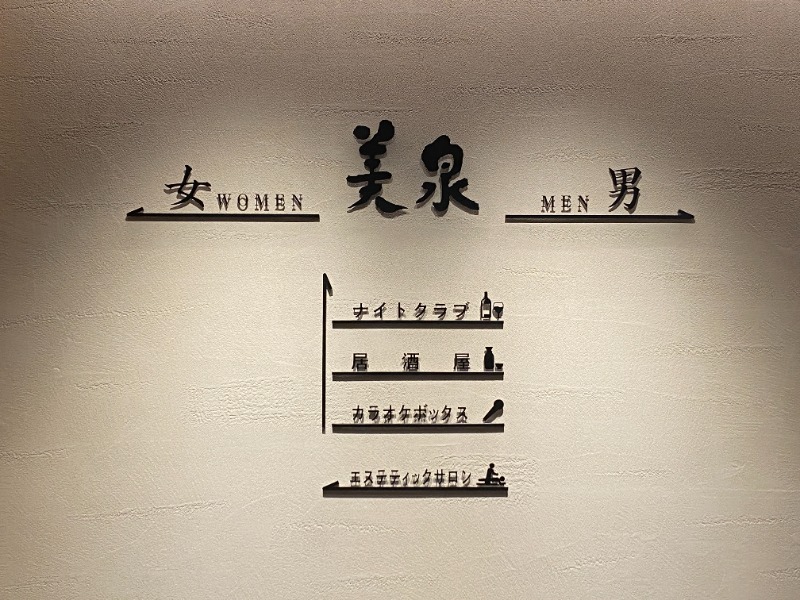 美泉
女 WOMEN
MEN 男
ナイトクラブ
居酒屋
カラオケボックス
エステティックサロン